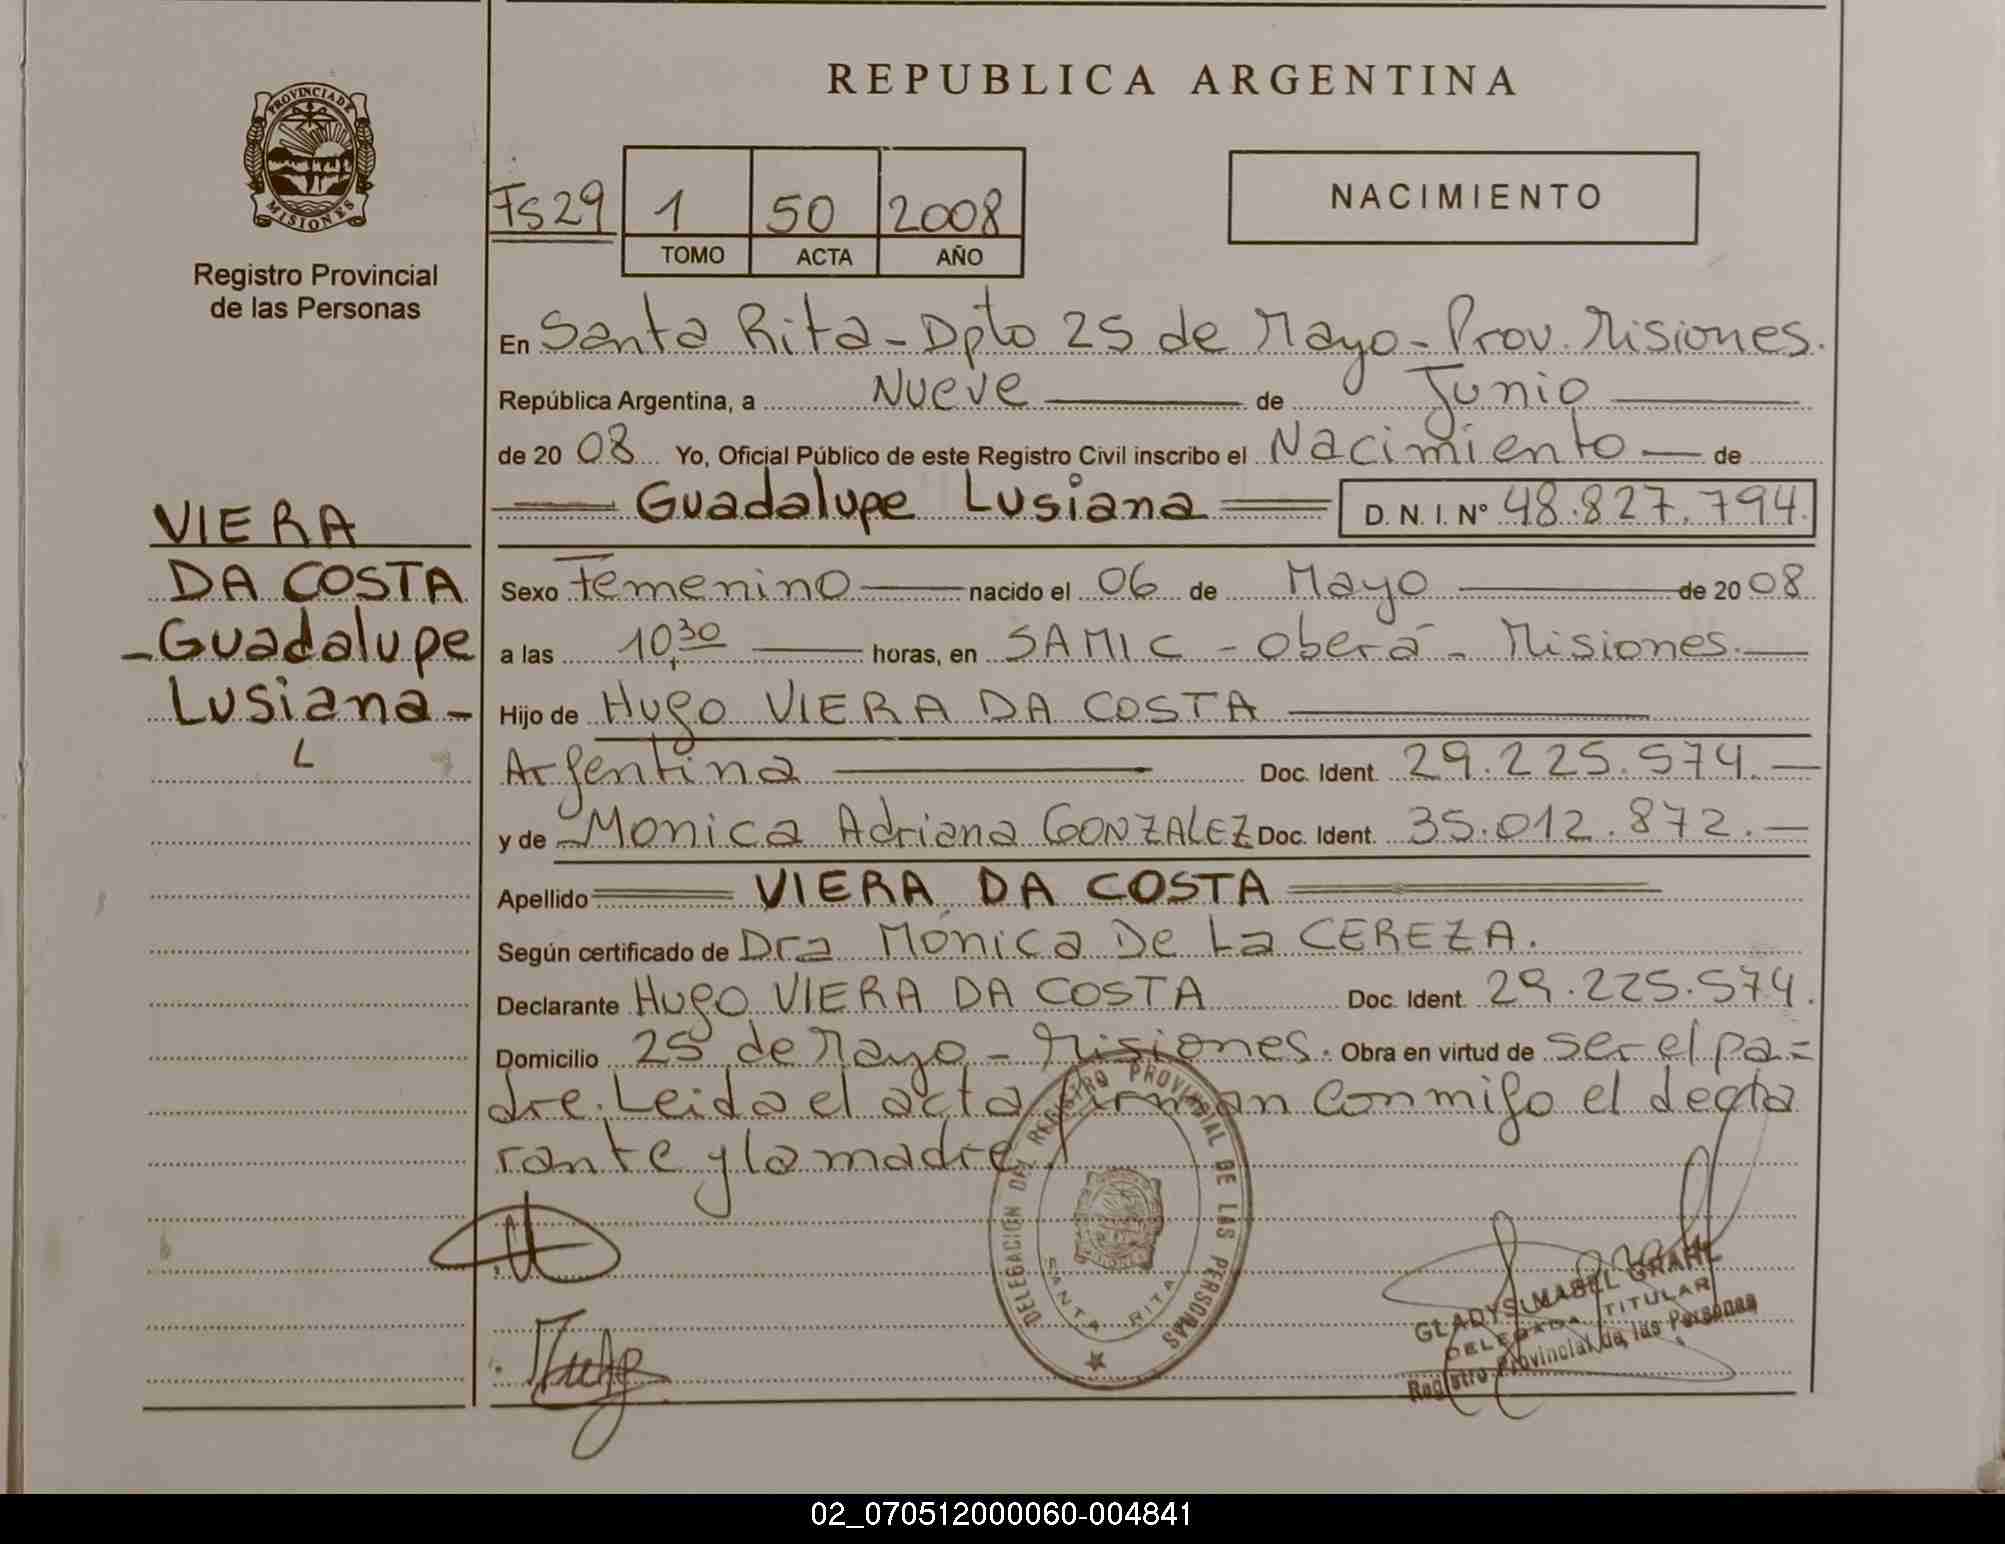 REPUBLICA ARGENTINA
PROVINCIA DE
MISIONES
Registro Provincial
de las Personas
Fs 29
1 50 2008
TOMO ACTA AÑO
NACIMIENTO
En Santa Rita - Dpto 25 de Mayo - Prov. Misiones.
República Argentina, a Nueve de Junio
de 20 08 Yo, Oficial Público de este Registro Civil inscribo el Nacimiento de
Guadalupe Lusiana D. N. I. Nº 48.827.794.
VIERA
DA COSTA
- Guadalupe
Lusiana -
L
Sexo Femenino nacido el 06 de Mayo de 20 08
a las 10,30 horas, en SAMIC - Oberá - Misiones.
Hijo de Hugo VIERA DA COSTA
Argentina Doc. Ident. 29.225.574.
y de Monica Adriana GONZALEZ Doc. Ident. 35.012.872.
Apellido VIERA DA COSTA
Según certificado de Dra Mónica De La CEREZA.
Declarante Hugo VIERA DA COSTA Doc. Ident. 29.225.574.
Domicilio 25 de Mayo - Misiones. Obra en virtud de ser el pa=
dre. Leida el acta firman conmigo el decla
rante y la madre.
DELEGACIÓN DEL REGISTRO PROVINCIAL DE LAS PERSONAS
SANTA RITA
GLADYS MABEL GRAHL
DELEGADA TITULAR
Registro Provincial de las Personas
02_070512000060-004841